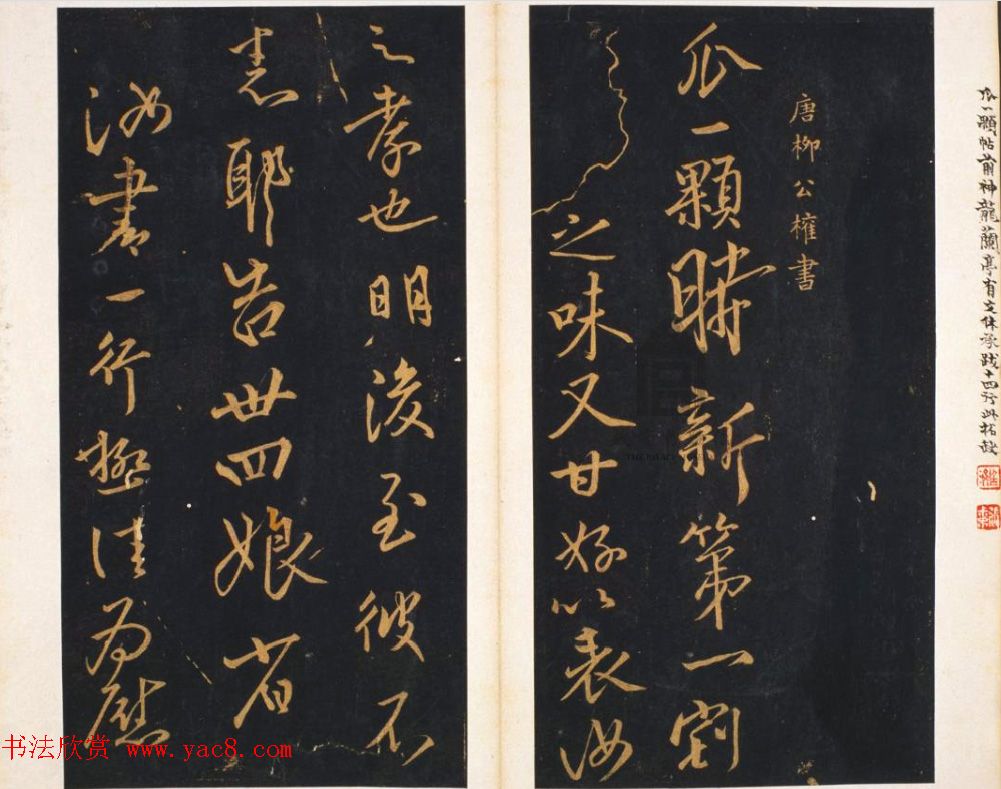 瓜一顆帖前神龍蘭亭有文休承跋十四行此拓缺
唐柳公權書
瓜一顆時新第一割
之味又甘好以表汝
之孝也明後至彼不
悉耶告卅四娘省
汝書一行極佳為慰
书法欣赏 www.yac8.com